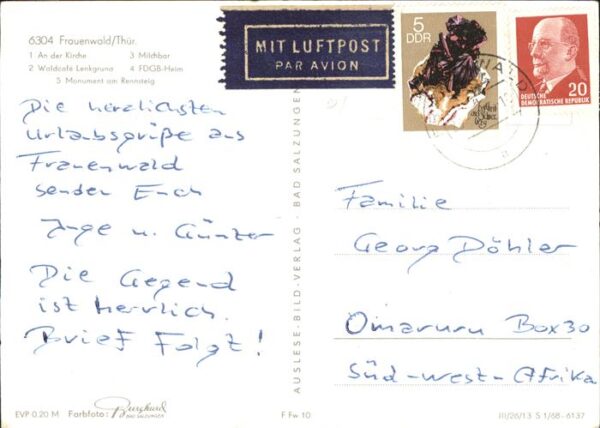 6304 Frauenwald/Thür.
1 An der Kirche 3 Milchbar
2 Waldcafé Lenkgrund 4 FDGB-Heim
5 Monument am Rennsteig
MIT LUFTPOST
PAR AVION
5
DDR
20
DEUTSCHE
DEMOKRATISCHE REPUBLIK
Die herzlichsten
Urlaubsgrüße aus
Frauenwald
senden Euch
Inge u. Günter
Die Gegend
ist herrlich.
Brief Folgt!
AUSLESE-BILD-VERLAG - BAD SALZUNGEN
Familie
Georg Döhler
Omaruru Box 30
Süd-West-Afrika
EVP 0,20 M Farbfoto: Burghard
BAD SALZUNGEN
F Fw 10
III/26/13 S 1/68-6137